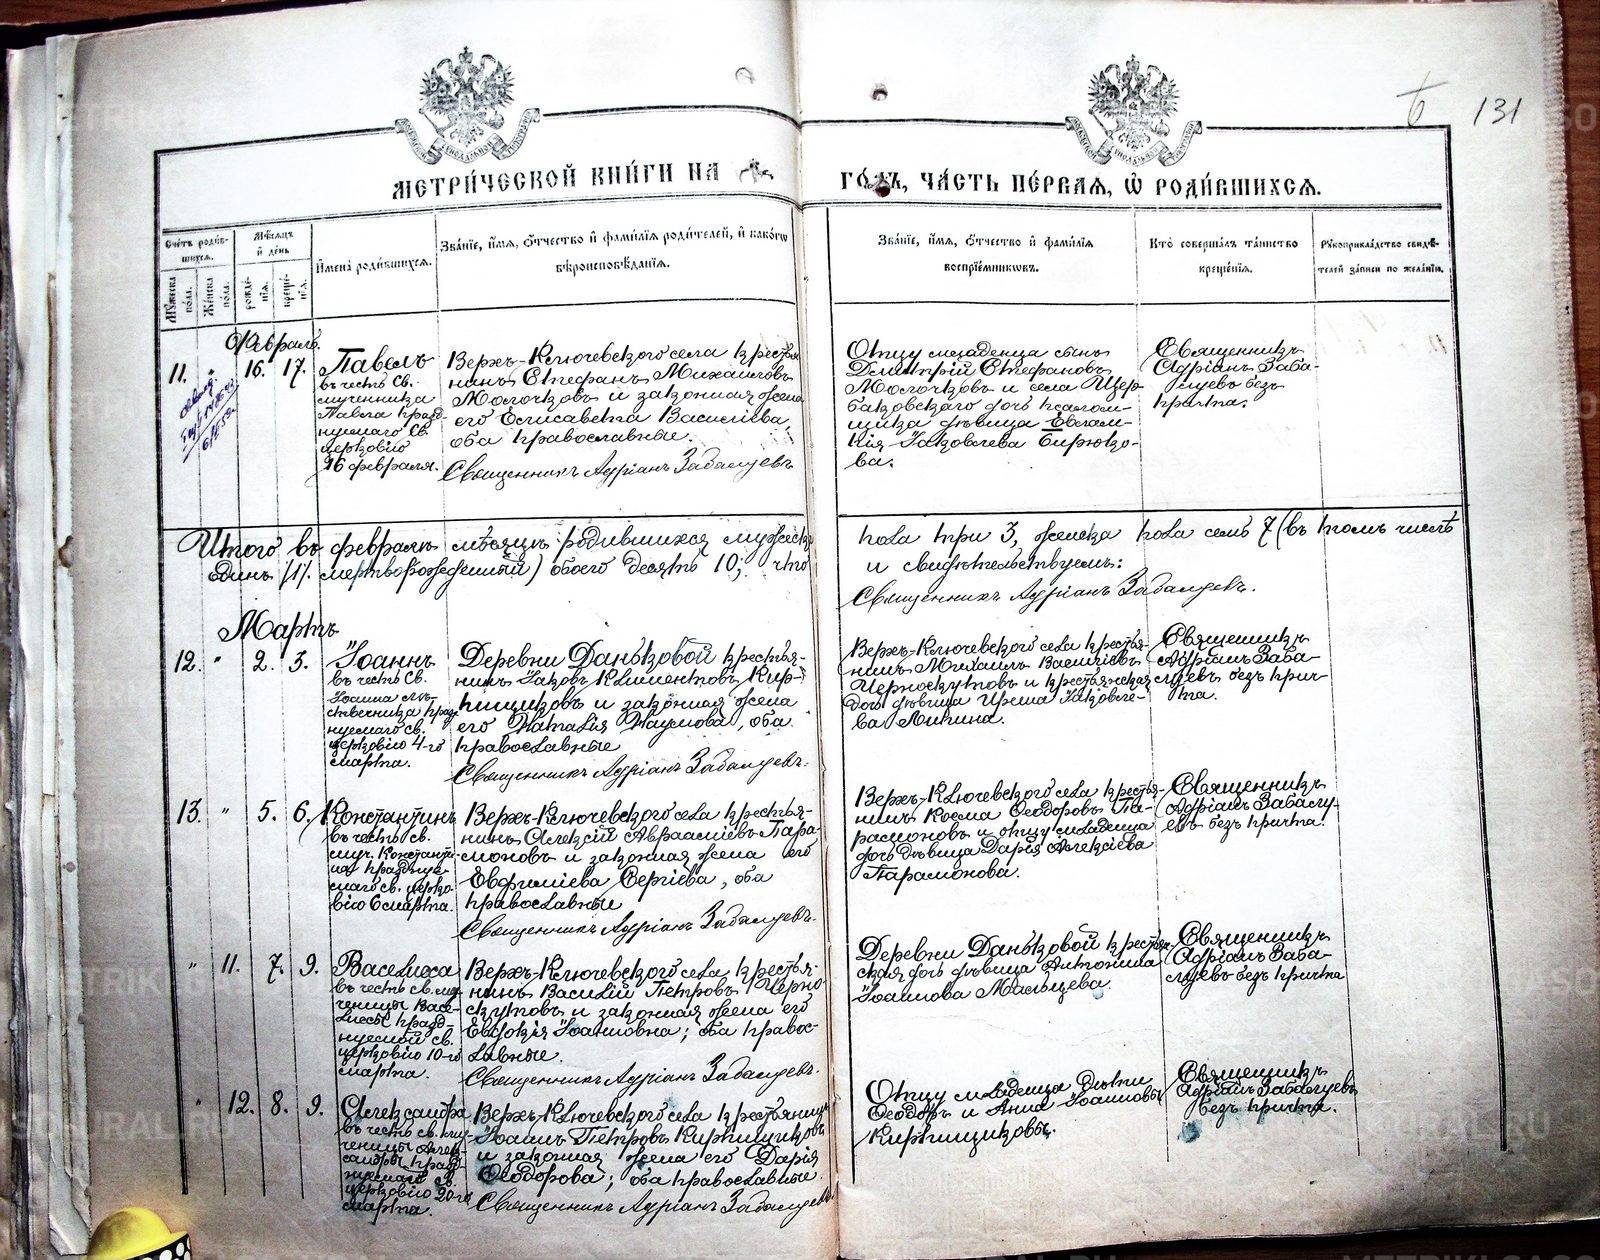 6 131
МЕТРИ́ЧЕСКОЙ КНИ́ГИ НА
ГО́ДЪ, ЧА́СТЬ ПЕ́РВАЯ, Ѡ҆ РОДИ́ВШИХСЯ.
Сче́тъ роди́в-
шихся.
Му́жеска по́ла.
Же́нска по́ла.
Мѣ́сяцъ
и҆ де́нь
рожде́-
нїя.
креще́-
нїя.
И҆мена̀ роди́вшихся.
Зва́нїе, и҆́мя, ѻ҆́тчество и҆ фами́лїя роди́телей, и҆ како́гѡ
вѣроисповѣ́данїя.
Зва́нїе, и҆́мя, ѻ҆́тчество и҆ фами́лїя
воспрїе́мникѡвъ.
Кто̀ соверша́лъ та́инство
креще́нїя.
Рꙋкоприкла́дство свидѣ́-
телей за́писи по жела́нїю.
Февраль.
11. " 16. 17.
Павелъ
въ честь св.
мученника
Павла празд-
нуемаго св.
церковію
16 февраля.
Верхъ-Ключевского села крестья
нинъ Стефанъ Михаиловъ
Молочковъ и законная жена
его Елисавета Васильева,
оба православные.
Священникъ Адріанъ Забалуевъ
Отцу младенца сынъ
Димитрій Стефановъ
Молочковъ и села Щер-
баковскаго дочь псалом-
щика дѣвица Евлам-
пія Іаковлева Бирюко-
ва.
Священникъ
Адріанъ Заба-
луевъ безъ
причта.
Итого въ февралѣ мѣсяцѣ родившихся мужеска
пола три 3, женска пола семь 7 (въ томъ числѣ
Одинъ /1/. мертворожденный) обоего десять 10; что
и свидѣтельствуемъ:
Священникъ Адріанъ Забалуевъ.
Мартъ
12. " 2. 3.
Іоаннъ
въ честь св.
Іоанна лѣ-
ственника празд-
нуемаго св.
церковію 4-го
марта.
Деревни Даньковой крестья-
нинъ Іаковъ Климентовъ Кир-
пищиковъ и законная жена
его Наталія Наумова, оба
православные
Священникъ Адріанъ Забалуевъ.
Верхъ-Ключевского села крестья-
нинъ Михаилъ Васильевъ
Черноскутовъ и крестьянская
дочь дѣвица Ирина Іаковле-
ва Липина.
Священникъ
Адріанъ Заба-
луевъ безъ прич-
та.
13. " 5. 6.
Константинъ
въ честь св.
муч. Константи-
на праздну-
емаго св. церко-
вію 6 марта.
Верхъ-Ключевского села крестья-
нинъ Алексій Авраамьевъ Пара-
моновъ и законная жена его
Евфимьева Сергіева, оба
православные
Священникъ Адріанъ Забалуевъ.
Верхъ-Ключевского села крестья-
нинъ Косма Ѳеодоровъ Па-
расионовъ и отцу младенца
дочь дѣвица Дарія Алексіева
Парамонова.
Священникъ
Адріанъ Забалу-
евъ безъ причта.
" 11. 7. 9.
Василиса
въ честь св. му-
ченицы Васи-
лисы празд-
нуемой св.
церковію 10-го
марта.
Верхъ-Ключевского села крестья-
нинъ Василій Петровъ Черно-
скутовъ и законная жена его
Евдокія Іоанновна; оба право-
славные.
Священникъ Адріанъ Забалуевъ.
Деревни Даньковой крестьян-
ская дочь дѣвица Антонина
Іоаннова Мальцева.
Священникъ
Адріанъ Заба-
луевъ безъ причта
" 12. 8. 9.
Александра
въ честь св. му-
ченицы Алек-
сандры празд-
нуемаго св.
церковію 20-го
марта.
Верхъ-Ключевского села крестьянинъ
Іоаннъ Петровъ Кирпищиковъ
и законная жена его Дарія
Ѳеодорова; оба православные.
Священникъ Адріанъ Забалуевъ
Отцу младенца дѣти
Ѳеодоръ и Анна Іоанновы
Кирпищиковы.
Священникъ
Адріанъ Забалуевъ
безъ причта.